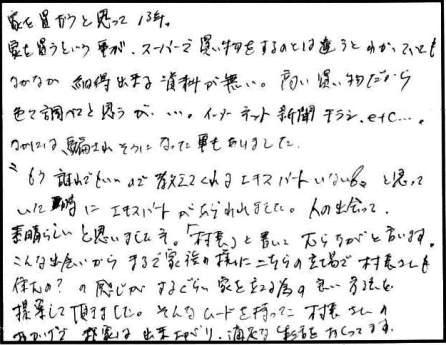 家を買おうと思って13年。
家を買うという事が、スーパーで買い物をするのとは違うとわかっていても
なかなか納得出来る資料が無い。高い買い物だから
色々調べてと思うが、…。インターネット新聞チラシ、etc…。
なかには、騙されそうになった事もありました。
“もう誰れでもいいので教えてくれるエキスパートいないか。と思って
いた時にエキスパートがあらわれました。人の出会って、
素晴らしいと思いました。「村長」と書いてむらおさと言います。
こんな出会いからまるで家族の様にこちらの立場で村長さんも
住むの？の感じがするぐらい家を立てる為の良い方法を
提案して頂きました。そんなムードを持った村長さんの
おかげで我家は出来上がり、満足な生活をおくってます。